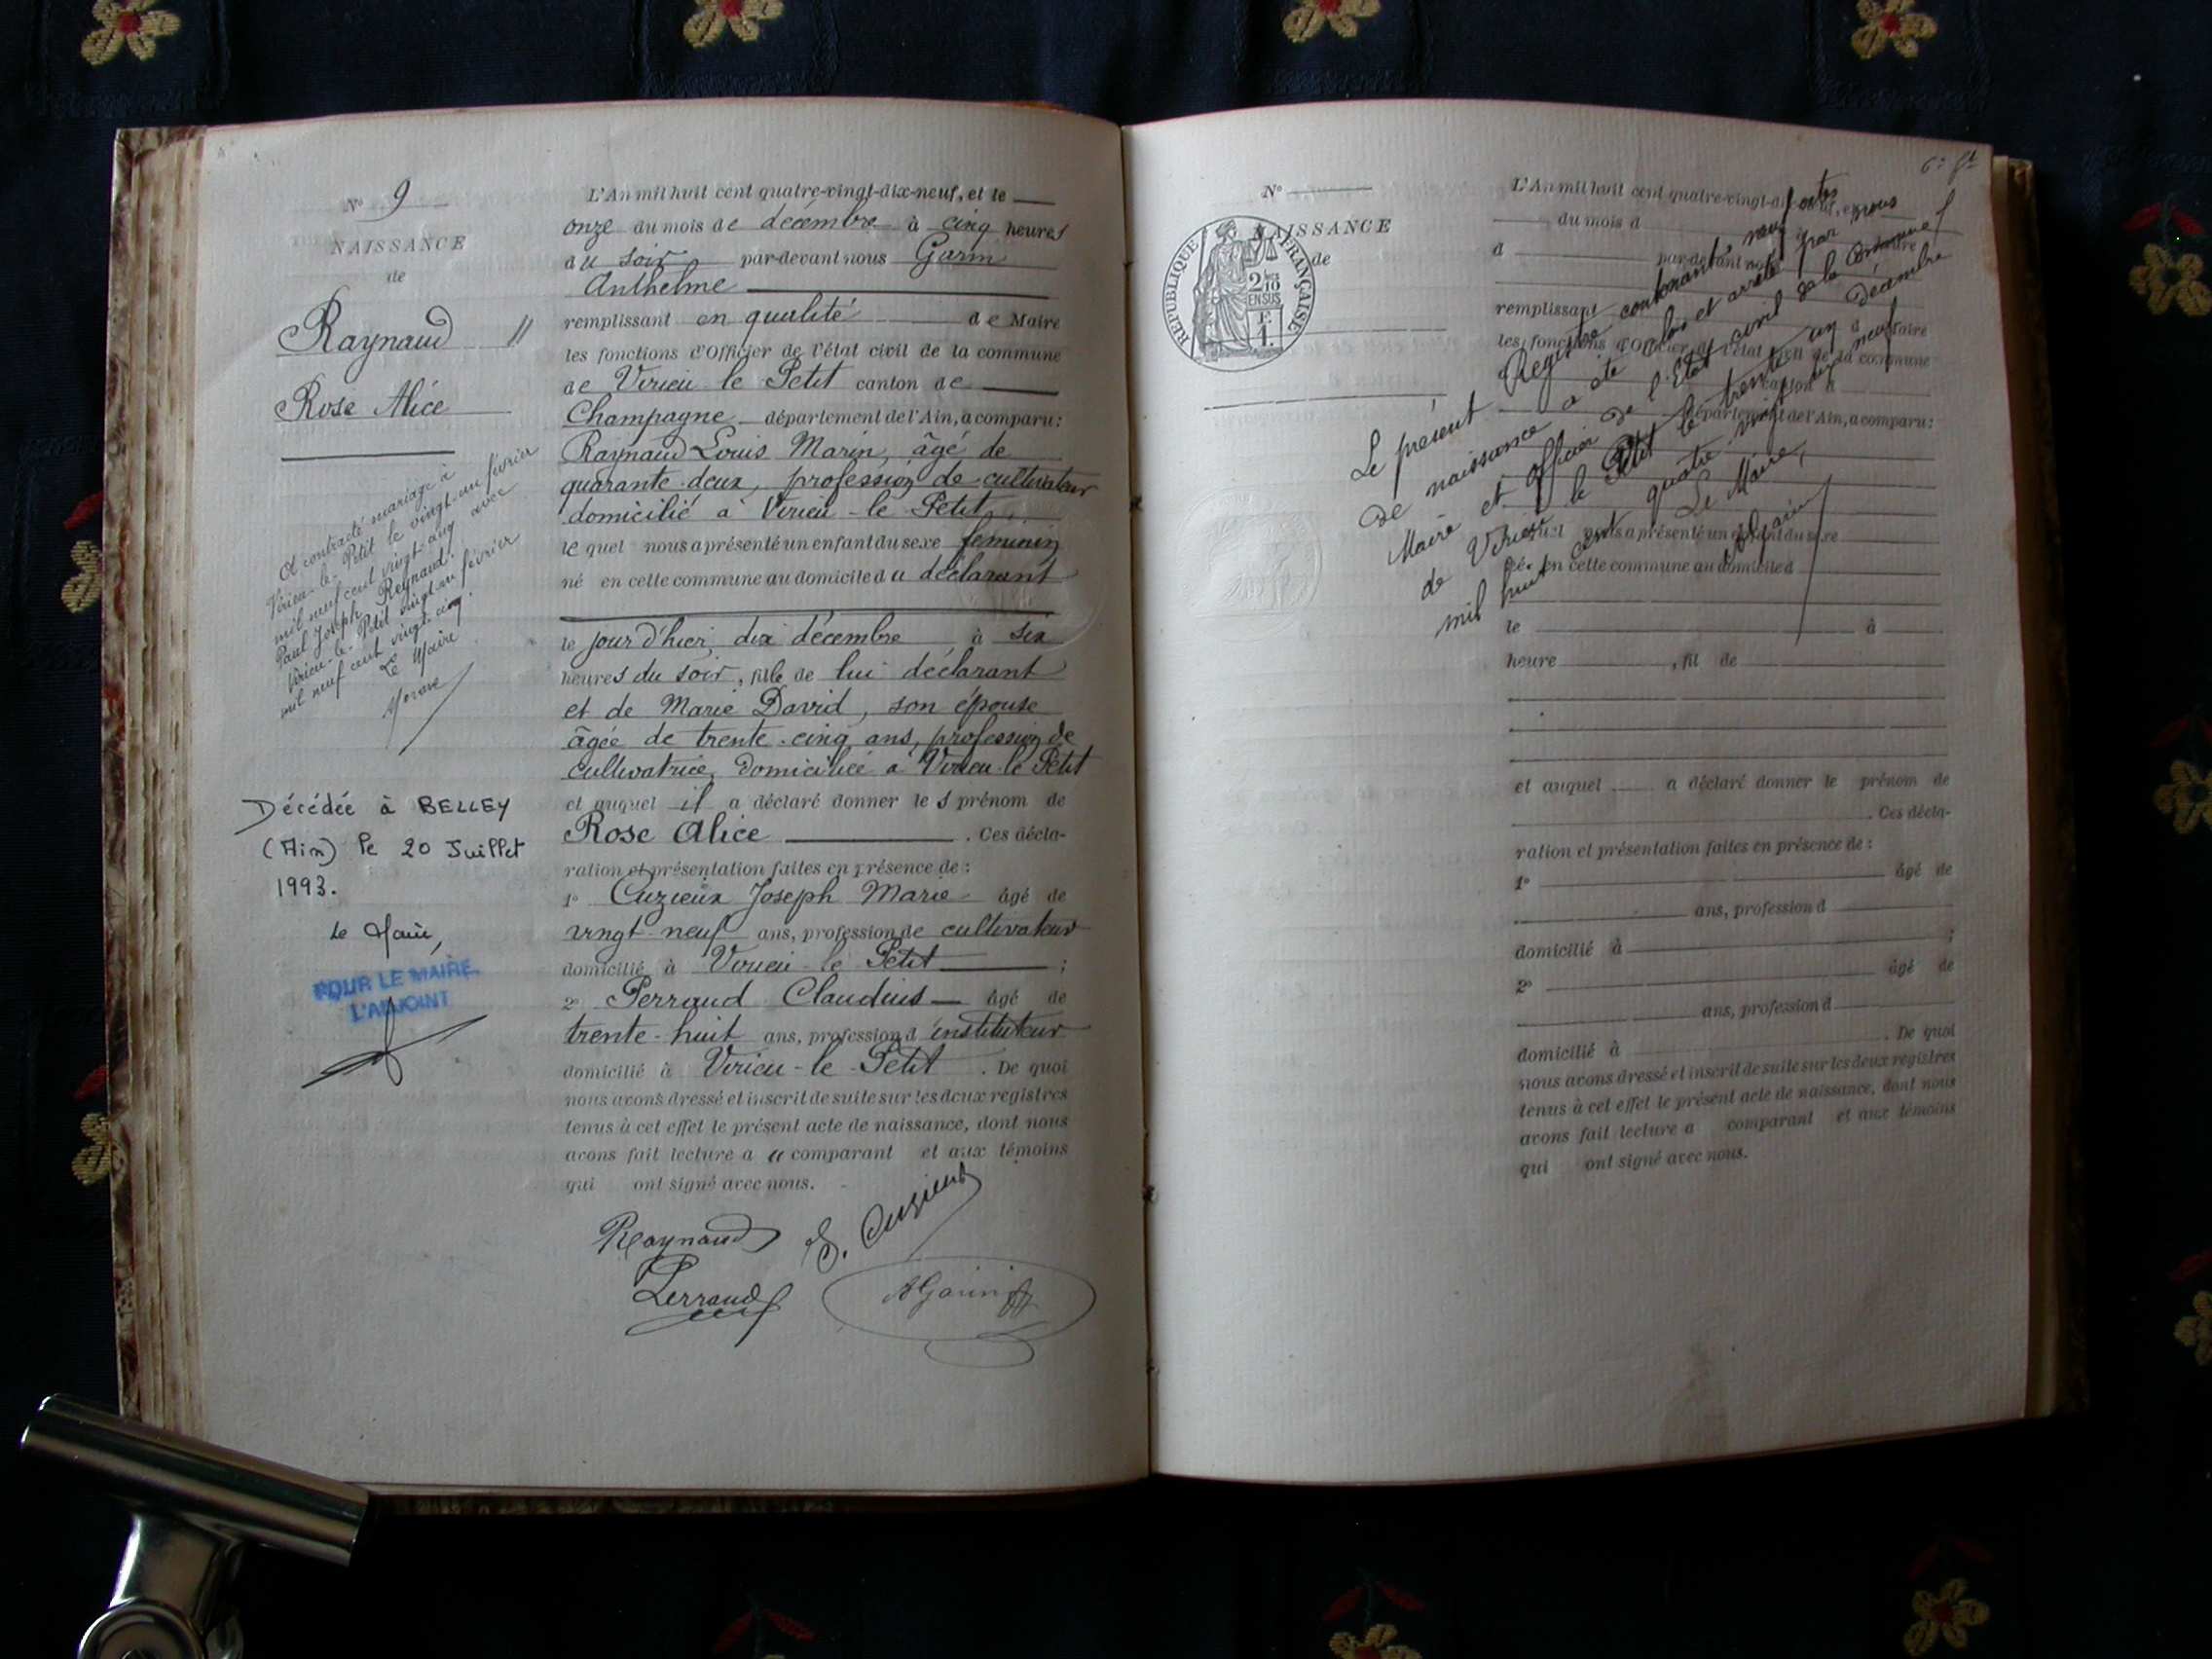 N° 9
NAISSANCE
de
Raynaud
Rose Alice
A contracté mariage à
Virieu-le-Petit le vingt-un février
mil neuf cent vingt-cinq avec
Paul Joseph Reynaud.
Virieu-le-Petit vingt-un février
mil neuf cent vingt-cinq.
Le Maire
Décédée à BELLEY
(Ain) le 20 Juillet
1993.
Le Maire,
POUR LE MAIRE
L'ADJOINT
L'An mil huit cent quatre-vingt-dix-neuf, et le
onze du mois de décembre à cinq heures
du soir par-devant nous Garin
Anthelme
remplissant en qualité de Maire
les fonctions d'Officier de l'état civil de la commune
de Virieu-le-Petit canton de
Champagne département de l'Ain, a comparu:
Raynaud Louis Marin, âgé de
quarante-deux, profession de cultivateur
domicilié à Virieu-le-Petit,
lequel nous a présenté un enfant du sexe féminin
né en cette commune au domicile du déclarant
le jour d'hier, dix décembre à six
heures du soir, fille de lui déclarant
et de Marie David, son épouse
âgée de trente-cinq ans, profession de
cultivatrice, domiciliée à Virieu-le-Petit
et auquel il a déclaré donner les prénom de
Rose Alice. Ces décla-
ration et présentation faites en présence de:
1° Cuzieux Joseph Marie âgé de
vingt-neuf ans, profession de cultivateur
domicilié à Virieu-le-Petit ;
2° Perraud Claudius âgé de
trente-huit ans, profession d'instituteur
domicilié à Virieu-le-Petit. De quoi
nous avons dressé et inscrit de suite sur les deux registres
tenus à cet effet le présent acte de naissance, dont nous
avons fait lecture au comparant et aux témoins
qui ont signé avec nous.
Raynaud J. Cuzieux
Perraud AGarin
6e ft
N°
NAISSANCE
de
RÉPUBLIQUE FRANÇAISE
2/10
EN SUS
F.
1.
L'An mil huit cent quatre-vingt-dix-neuf, et le
du mois d
à
d par-devant nous
remplissant d Maire
les fonctions d'Officier de l'état civil de la commune
d canton d
département de l'Ain, a comparu:
quel nous a présenté un enfant du sexe
né en cette commune au domicile d
le à
heure , fil de
et auquel a déclaré donner le prénom de
. Ces décla-
ration et présentation faites en présence de:
1° âgé de
ans, profession d
domicilié à ;
2° âgé de
ans, profession d
domicilié à . De quoi
nous avons dressé et inscrit de suite sur les deux registres
tenus à cet effet le présent acte de naissance, dont nous
avons fait lecture a comparant et aux témoins
qui ont signé avec nous.
Le présent Registre contenant neuf actes
de naissance a été clos et arrêté par nous
Maire et Officier de l'Etat civil de la commune
de Virieu-le-Petit le trente un décembre
mil huit cent quatre vingt dix neuf
Le Maire,
AGarin